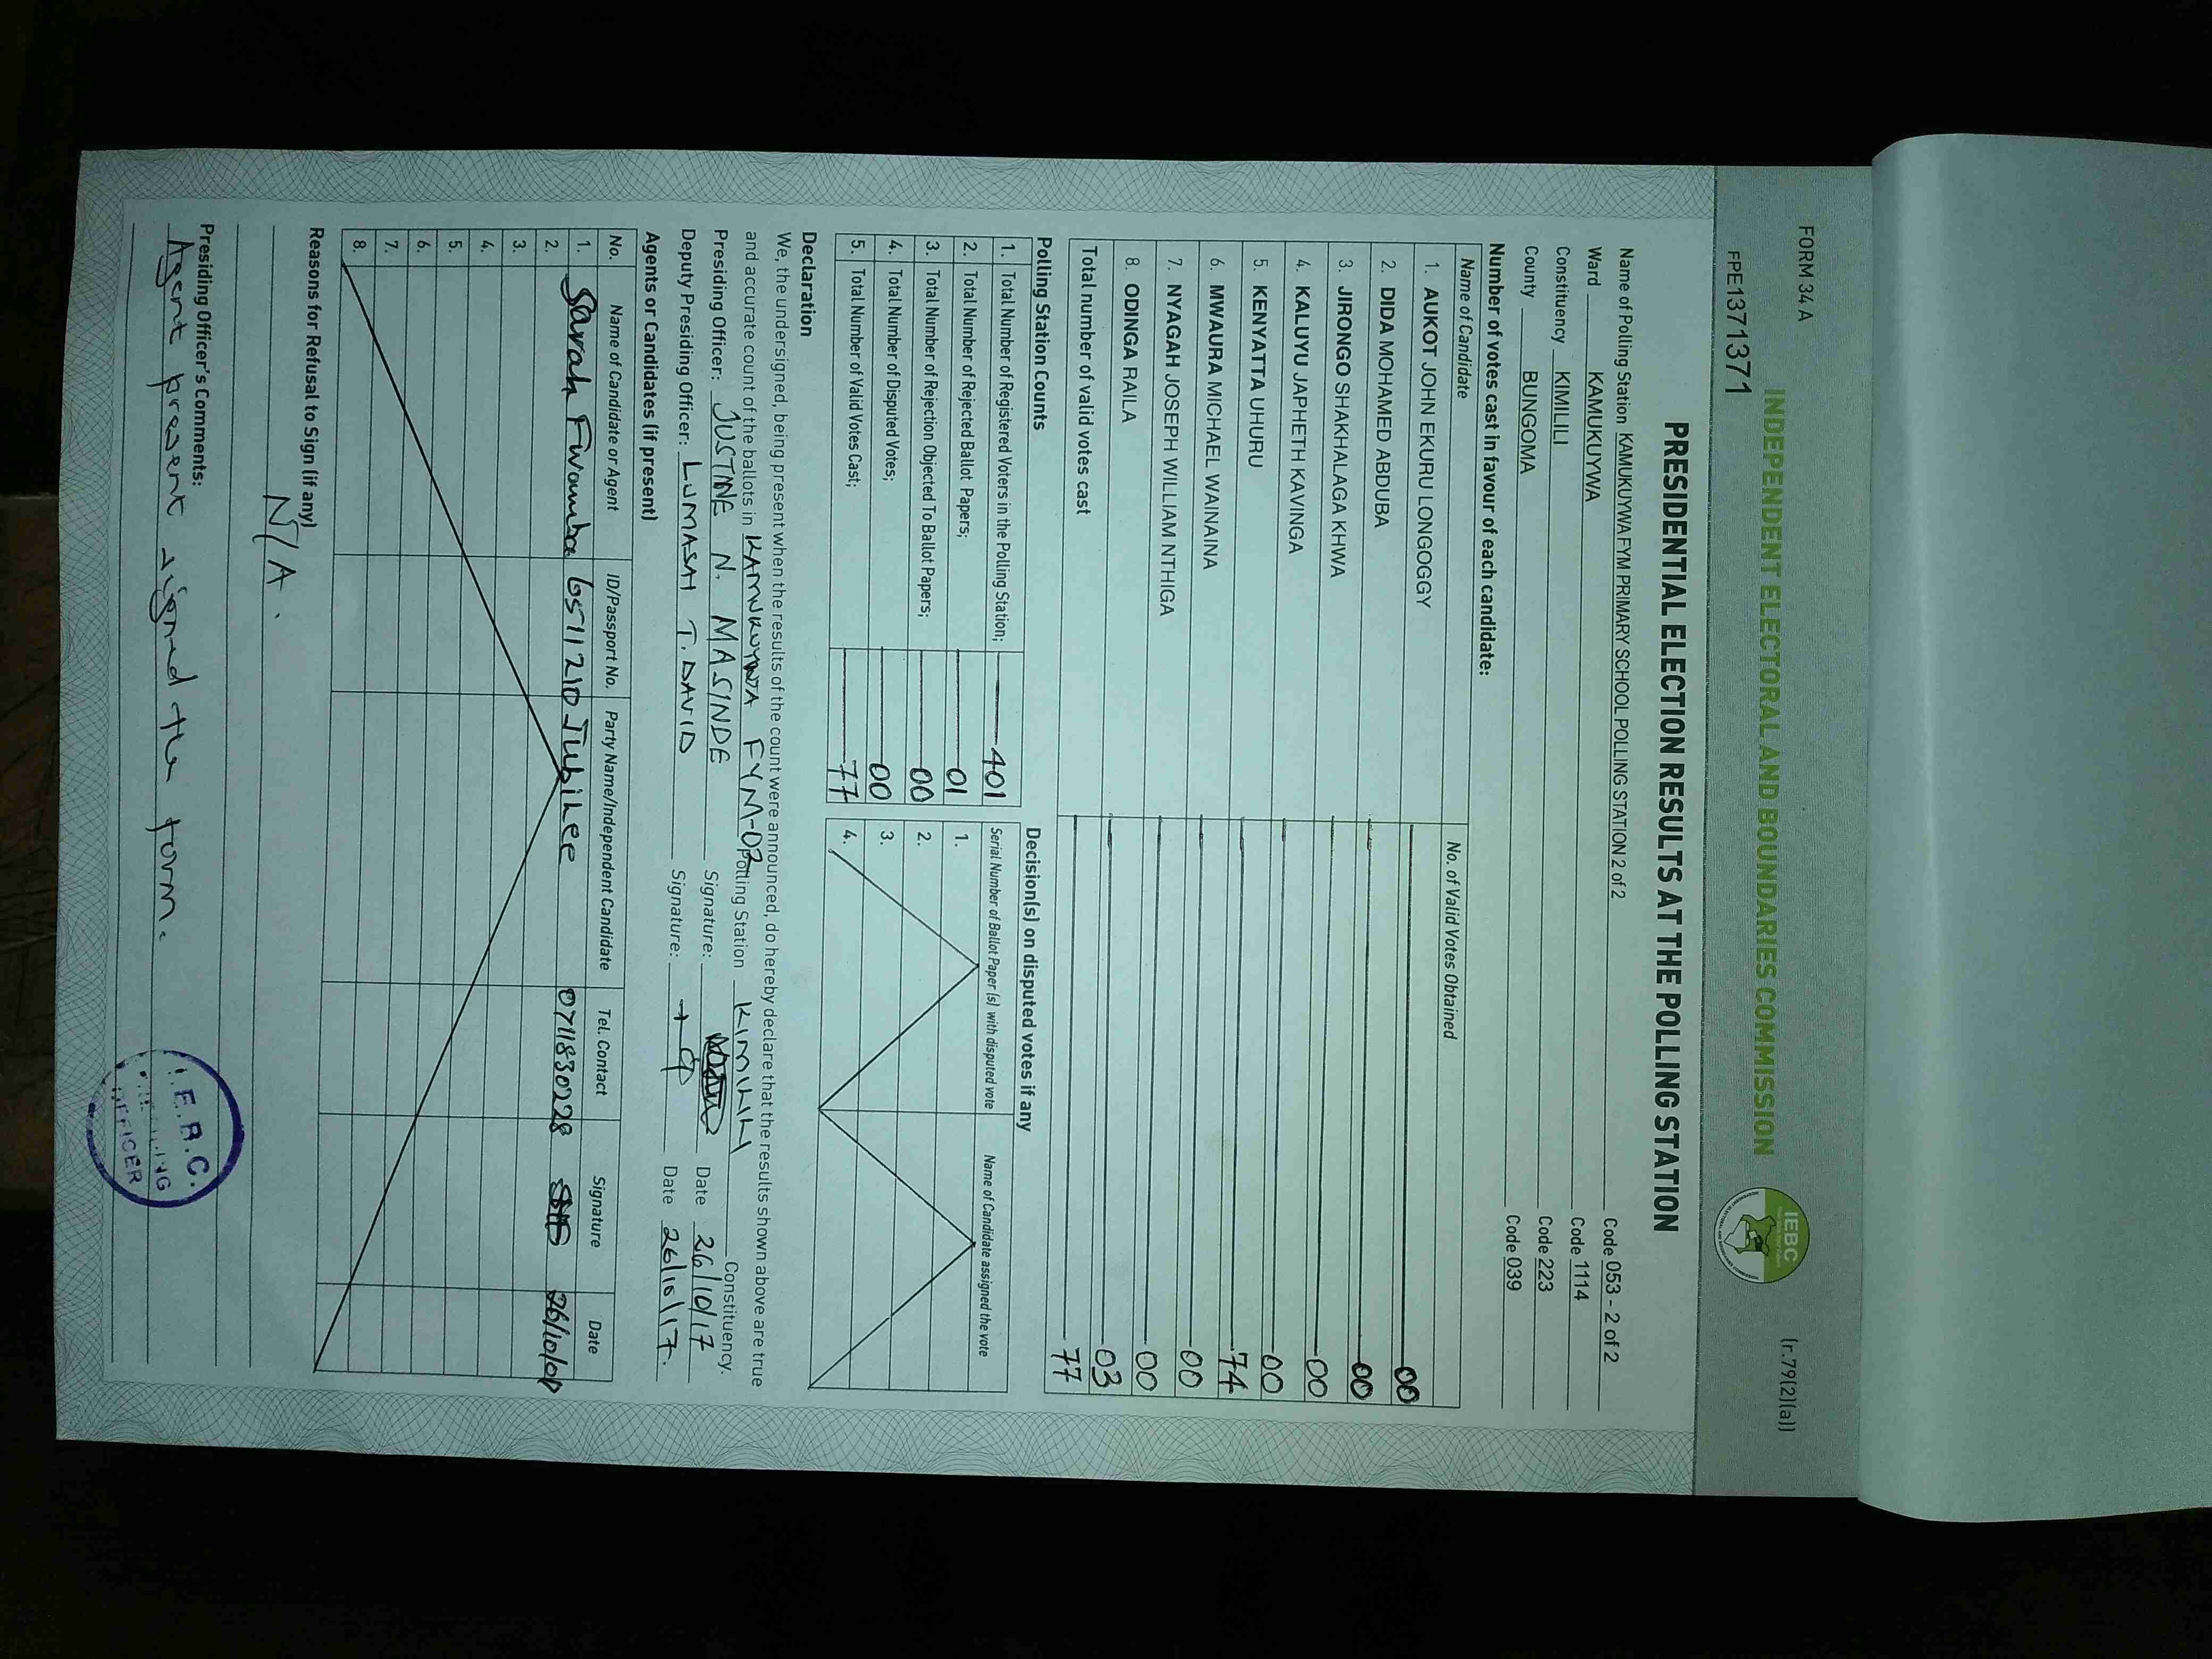 FORM 34 A
(r.79(2)(a))
INDEPENDENT ELECTORAL AND BOUNDARIES COMMISSION
IEBC
FPE1371371
PRESIDENTIAL ELECTION RESULTS AT THE POLLING STATION
Name of Polling Station KAMUKUYWA FYM PRIMARY SCHOOL POLLING STATION 2 of 2 Code 053 - 2 of 2
Ward KAMUKUYWA Code 1114
Constituency KIMILILI Code 223
County BUNGOMA Code 039
Number of votes cast in favour of each candidate:
Name of Candidate No. of Valid Votes Obtained
1. AUKOT JOHN EKURU LONGOGGY 00
2. DIDA MOHAMED ABDUBA 00
3. JIRONGO SHAKHALAGA KHWA 00
4. KALUYU JAPHETH KAVINGA 00
5. KENYATTA UHURU 74
6. MWAURA MICHAEL WAINAINA 00
7. NYAGAH JOSEPH WILLIAM NTHIGA 00
8. ODINGA RAILA 03
Total number of valid votes cast 77
Polling Station Counts
1. Total Number of Registered Voters in the Polling Station; 401
2. Total Number of Rejected Ballot Papers; 01
3. Total Number of Rejection Objected To Ballot Papers; 00
4. Total Number of Disputed Votes; 00
5. Total Number of Valid Votes Cast; 77
Decision(s) on disputed votes if any
Serial Number of Ballot Paper (s) with disputed vote Name of Candidate assigned the vote
1.
2.
3.
4.
Declaration
We, the undersigned, being present when the results of the count were announced, do hereby declare that the results shown above are true
and accurate count of the ballots in KAMUKUYWA FYM-02 Polling Station KIMILILI Constituency.
Presiding Officer: JUSTINE N. MASINDE Signature: Date 26/10/17
Deputy Presiding Officer: LUMASAI T. DAVID Signature: Date 26/10/17.
Agents or Candidates (if present)
No. Name of Candidate or Agent ID/Passport No. Party Name/Independent Candidate Tel. Contact Signature Date
1. Sarah Fwamba 6511210 Jubilee 0711830228
2.
3.
4.
5.
6.
7.
8.
Reasons for Refusal to Sign (if any)
N/A.
Presiding Officer's Comments:
Agent present signed the form.
I.E.B.C.
OFFICER